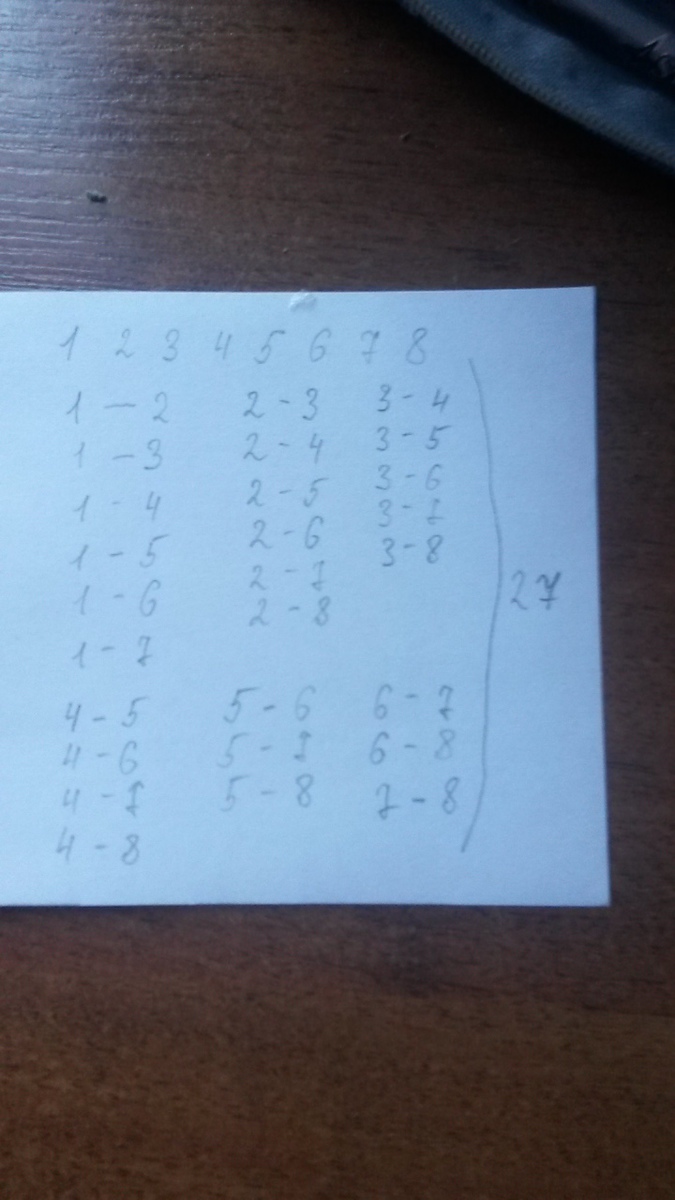 1 2 3 4 5 6 7 8
1 - 2 2 - 3 3 - 4
1 - 3 2 - 4 3 - 5
1 - 4 2 - 5 3 - 6
1 - 5 2 - 6 3 - 7
1 - 6 2 - 7 3 - 8
1 - 7 2 - 8
27
4 - 5 5 - 6 6 - 7
4 - 6 5 - 7 6 - 8
4 - 7 5 - 8 7 - 8
4 - 8